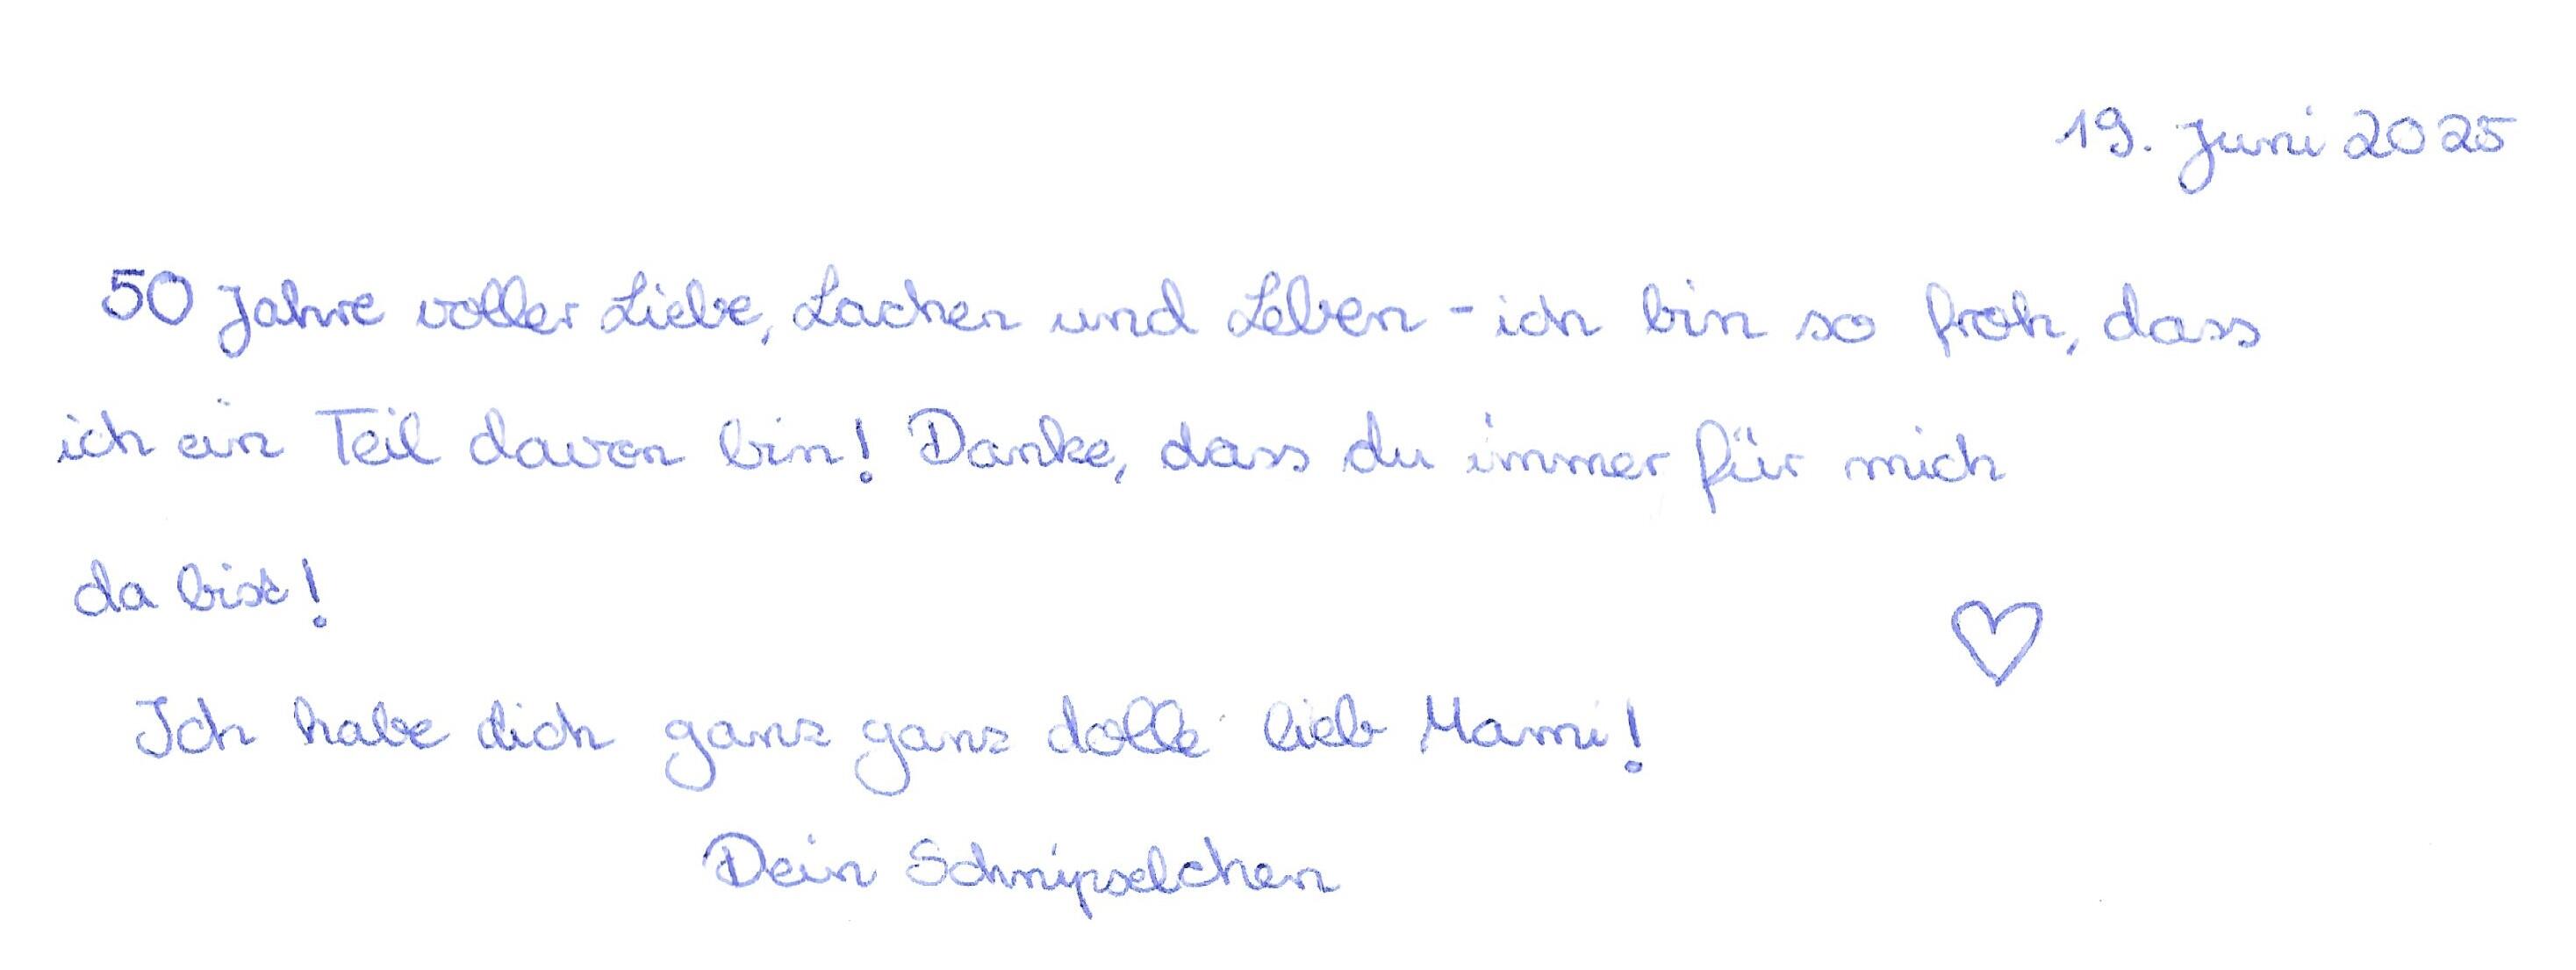 19. Juni 2025
50 Jahre voller Liebe, Lachen und Leben - ich bin so froh, dass
ich ein Teil davon bin! Danke, dass du immer für mich
da bist!
Ich habe dich ganz ganz dolle lieb Mami!
Dein Schnipselchen